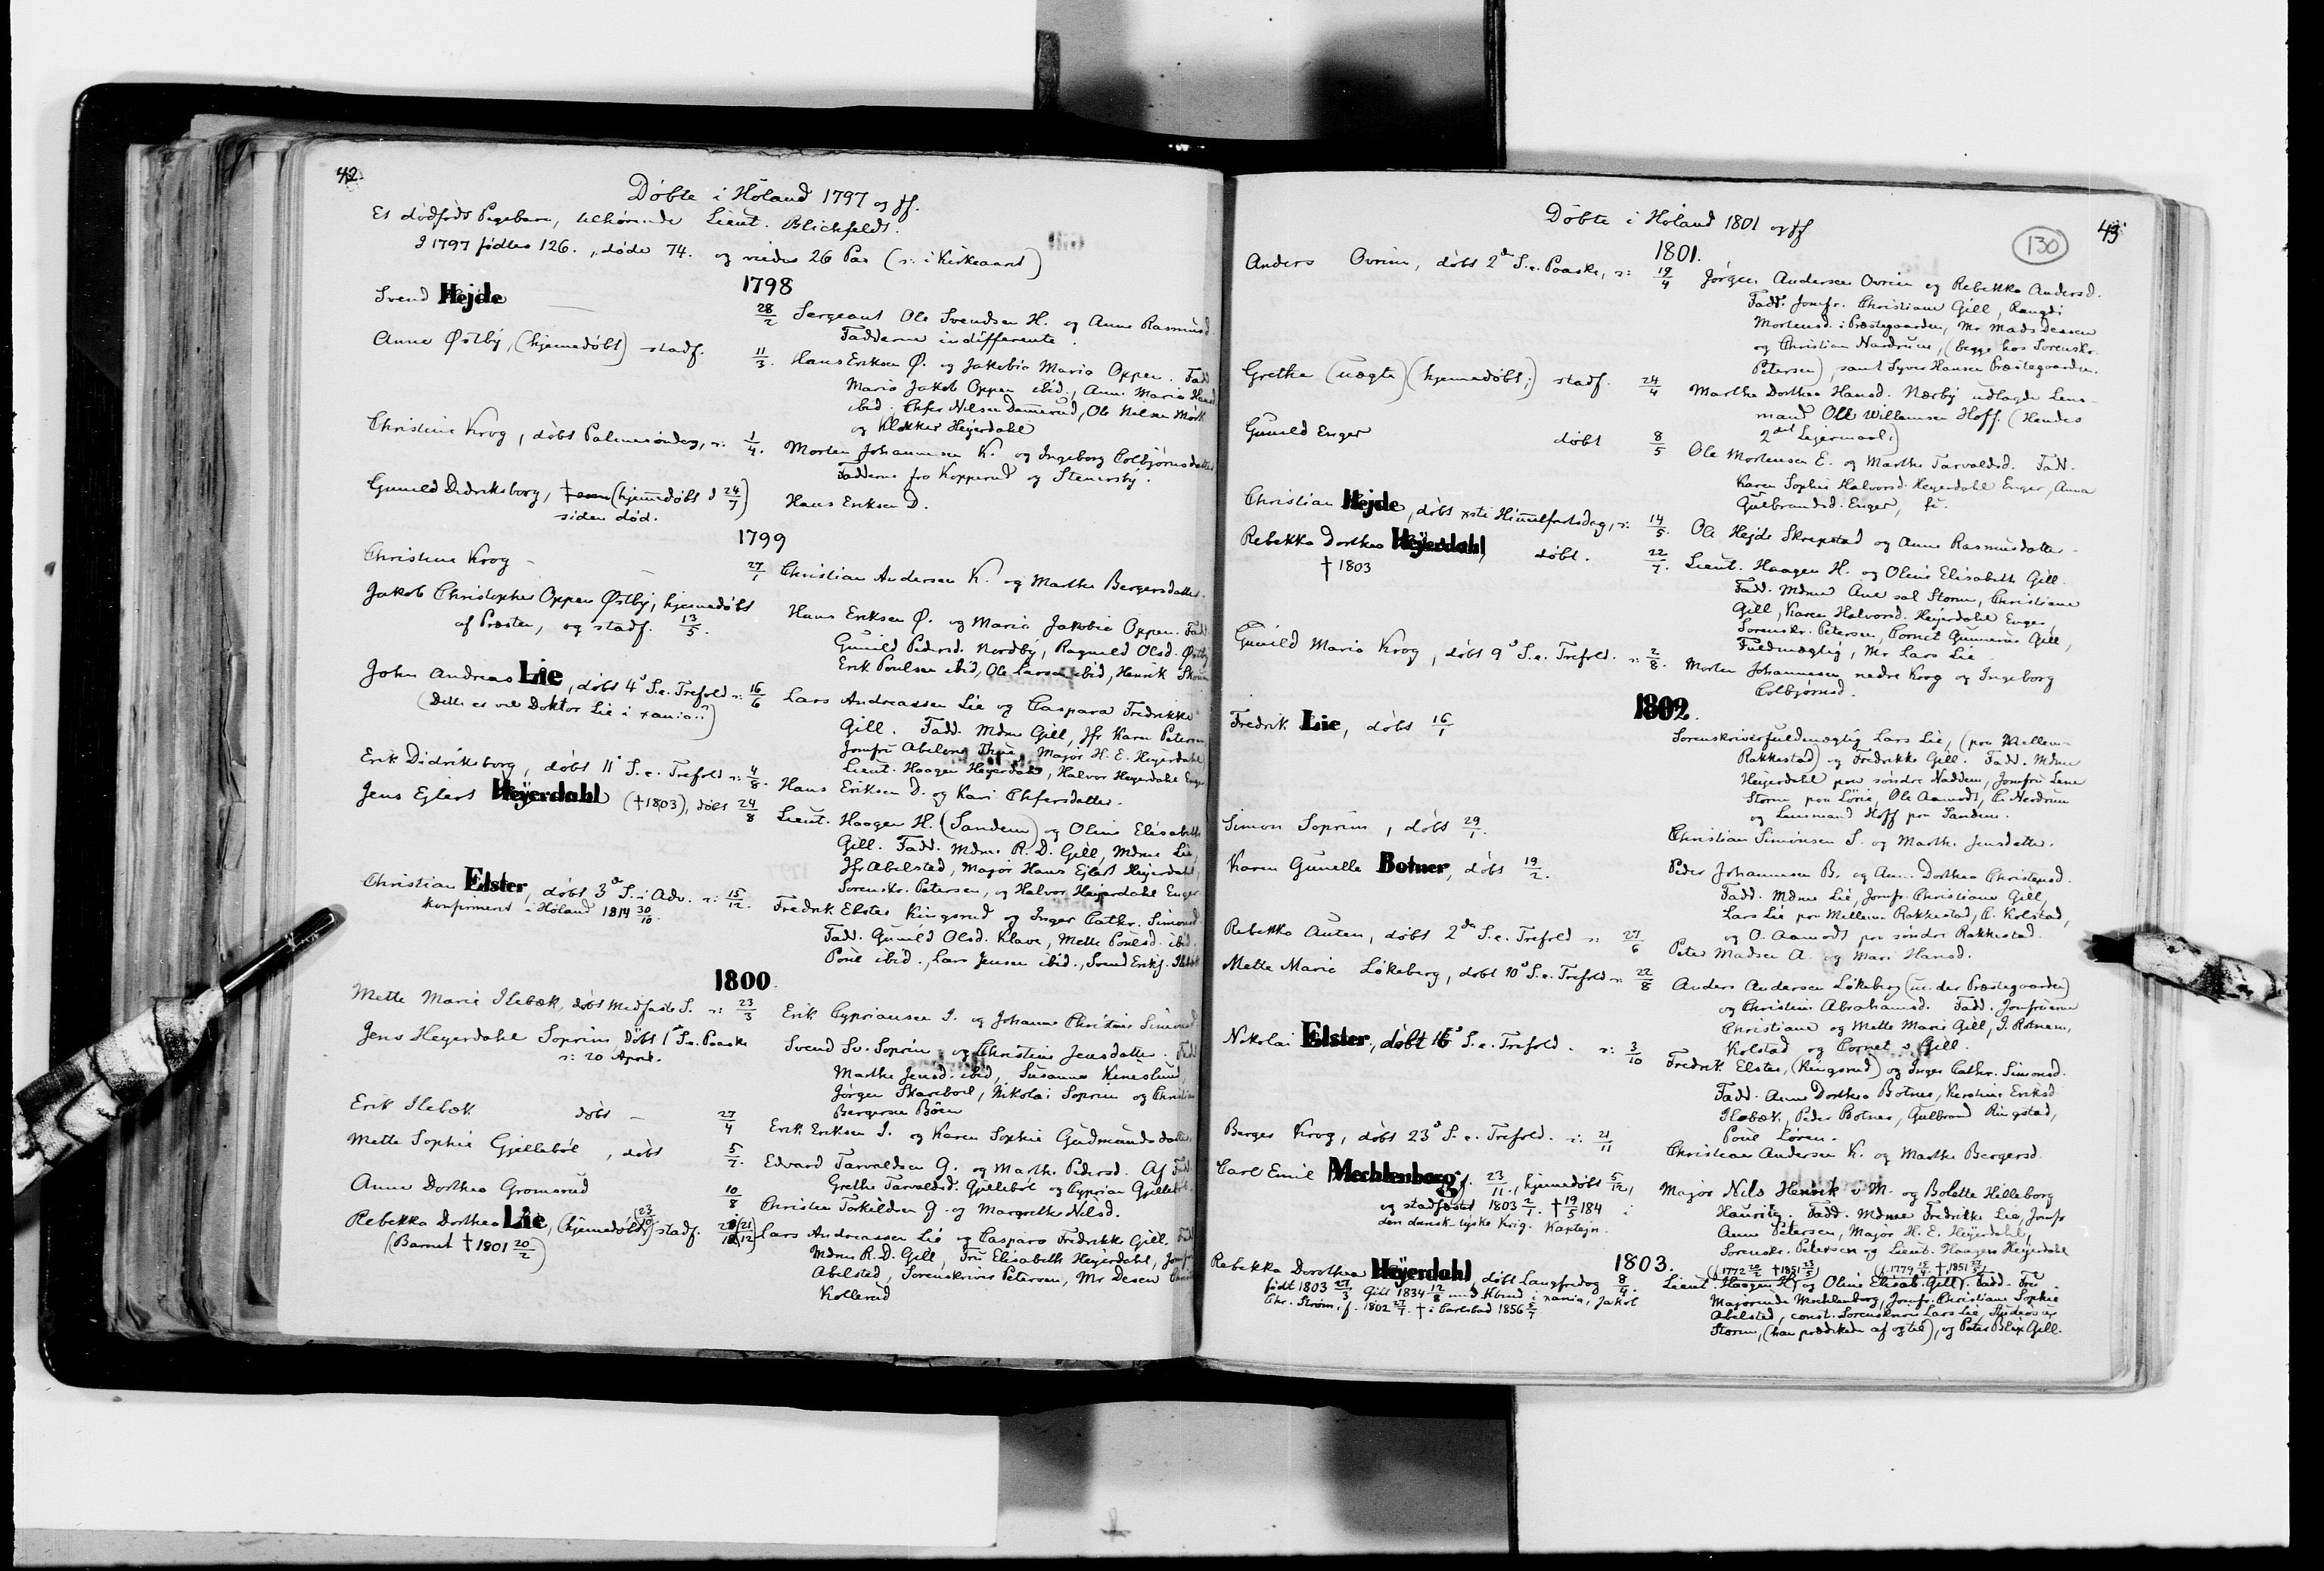 42.
Döbte i Höland 1797 og ff.
Et dödfödt Pigebarn, tilhörende Lieut. Blichfeldt.
I 1797 födtes 126. „ döde 74. og viedes 26 Par (ɔ: i Kirkeaaret)
1798
Svend Hejde — 28/2 Sergeant Ole Svendsen H. og Anne Rasmusd.
Fadderne indifferente.
Anne Østby, (hjemmedöbt) stadf. 11/3. Hans Eriksen Ø. og Jakobia Maria Oppen. Fadd
Maria Jakob Oppen ibid, Anne Maria Hansd
ibid. Chfer Nilsen Dammerud, Ole Nilsen Mörk
og Klokker Heyerdahl
Christine Krog, döbt Palmesöndag, ɔ: 1/4. Morten Johannesen K. og Ingeborg Colbjörnsdatter
Fadderne fra Kopperud og Stenersby.
Gunild Didriksborg, (hjemmedöbt d 24/7) Hans Eriksen D.
siden död.
1799
Christine Krog — — 27/1 Christian Andersen K. og Marthe Bergersdatter.
Jakob Christopher Oppen Østby, hjemmedöbt Hans Eriksen Ø. og Maria Jakobia Oppen. Fadd.
af Præsten, og stadf. 13/5. Gunild Pedersd. Nordby, Ragnild Olsd. Østby
Erik Poulsen ibid, Ole Larsen ibid, Henrik
John Andreas Lie, döbt 4' S. e. Trefold ɔ: 16/6 Lars Andreassen Lie og Caspara Fredrikke
(Dette er vel Doktor Lie i xania??) Gill. Fadd. Mdme Gill, Jfr Karen Petersen
Jomfru Abelone Thue, Major H. E. Heyerdahl
Lieut. Haagen Heyerdahl, Halvor Heyerdahl Enger
Erik Didriksborg, döbt 11' S. e. Trefold ɔ: 4/8. Hans Eriksen D. og Kari Chfersdatter.
Jens Ejlert Heyerdahl (†1803), döbt 24/8 Lieut. Haagen H. (Sandem) og Oline Elisabeth
Gill. Fadd. Mdme R. D. Gill, Mdme Lie,
Jfr Abelsted, Major Hans Ejlert Heyerdahl,
Sorenskr. Petersen, og Halvor Heyerdahl Enger
Christian Elster, döbt 3de S. i Adv. ɔ: 15/12. Fredrik Elster Kingsrud og Inger Cathr. Simonsd
konfirmeret i Höland 1814 30/10. Fadd. Gunild Olsd. Klave, Mette Poulsd. ibid.
Poul ibid., Lars Jensen ibid., Svend Eriks.
1800
Mette Marie Ilebæk, döbt Midfaste S. ɔ: 23/3 Erik Cypriansen I. og Johanne Christine Simonsd
Jens Heyerdahl Soprim, döbt 1' S. e. Paaske Svend Sv. Soprim og Christine Jensdatter. Fadd
ɔ: 20 April. Marthe Jensd. ibid, Susanna Keneslund,
Jörgen Skareboel, Nikolai Soprim og Christian
Bergersen Böen
Erik Ilebæk döbt — 27/4 Erik Eriksen I. og Karen Sophie Gudmundsdatter.
Mette Sophie Gjelleböl, döbt 5/7. Edvard Tarvaldsen G. og Marthe Pedersd. Af Fadd.
Grethe Tarvaldsd. Gjelleböl og Cyprian Gjelleböl.
Anne Dorthea Gromsrud 10/8 Christen Torkildsen G. og Margrethe Nilsd.
Rebekka Dorthea Lie, (hjemmedöbt 23/10) stadf. (21/12) Lars Andreassen Lie og Caspara Fredrikke Gill. Fadd
(Barnet † 1801 20/2) Mdme R. D. Gill, Fru Elisabeth Heyerdahl, Jomfru
Abelsted, Sorenskriver Petersen, Mr Desen
Kollerud
43
130
Döbte i Höland 1801 og ff
1801.
Anders Ovrim, döbt 2den S. e. Paaske, ɔ: 19/4 Jörgen Andersen Ovrim og Rebekka Andersd.
Fadd. Jomfr. Christiane Gill, Rangdi
Mortensd. i Præstegaarden, Mr Mads Dessen
og Christian Nardrum, (begge hos Sorenskr.
Petersen), samt Syver Hansen Præstegaarden.
Grethe (uægte) (hjemmedöbt;) stadf. 24/4 Marthe Dorthea Hansd. Nærby udlagde Lens-
mand Ole Willumsen Hoff. (Hendes
2det Lejermaal.)
Gunild Enger döbt 8/5 Ole Mortensen E. og Marthe Tarvaldsd. Fadd.
Karen Sophie Halvorsd. Heyerdahl Enger, Anna
Gulbrandsd. Enger, fl.
Christian Hejde, döbt xsti Himmelfartsdag, ɔ: 14/5. Ole Hejde Skrepstad og Anne Rasmusdatter —
Rebekka Dorthea Heyerdahl, döbt. 22/7. Lieut. Haagen H. og Oline Elisabeth Gill.
† 1803 Fadd. Mdme Ane sal Storm, Christiane
Gill, Karen Halvorsd. Heyerdahl Enger,
Sorenskr. Petersen, Cornet Gunnerus Gill,
Fuldmægtig, Mr Lars Lie
Gunild Maria Krog, döbt 9' S. e. Trefold. ɔ: 2/8. Morten Johannesen nedre Krog og Ingeborg
Colbjörnsd.
1802.
Fredrik Lie, döbt 16/1 Sorenskriverfuldmægtig Lars Lie, (paa Mellem-
Rakkestad) og Fredrikke Gill. Fadd. Mdme
Heyerdahl paa söndre Naddum, Jomfru Lene
Storm paa Löri, Ole Aamodt, C. Nerdrum
og Lensmand Hoff paa Sandem.
Simon Soprim, döbt 29/1. Christian Simonsen S. og Marthe Jensdatter.
Karen Gunelle Botner, döbt 19/2. Peder Johannesen B. og Anne Dorthea Christensd.
Fadd. Mdme Lie, Jomfr. Christiane Gill,
Lars Lie paa Mellem Rakkestad, C. Kolstad,
og O. Aamodt paa söndre Rakkestad.
Rebekka Auten, döbt 2den S. e. Trefold ɔ: 27/6 Peter Madsen A. og Mari Hansd.
Mette Marie Lökeberg, döbt 10' S. e. Trefold ɔ: 22/8 Anders Andersen Lökeberg (under Præstegaarden)
og Christine Abrahamsd. Fadd. Jomfruerne
Christiane og Mette Marie Gill, J. Rotnem,
Kolstad og Cornet Gill.
Nikolai Elster, döbt 16' S. e. Trefold. ɔ: 3/10 Fredrik Elster, (Kingsrud) og Inger Cathr. Simonsd.
Fadd. Anne Dorthea Botner, Kerstine Eriksd
Ilebæk, Peder Botner, Gulbrand Ringstad,
Poul Lören.
Berger Krog, döbt 23' S. e. Trefold. ɔ: 21/11 Christian Andersen K. og Marthe Bergersd.
Carl Emil Mechlenborg, f. 23/11., hjemmedöbt 5/12, Major Nils Henrik v M. og Bolette Hilleborg
og stadfæstet 1803 2/1. † 19/5 184 i Hauritz. Fadd. Mdme Fredrikke Lie, Jomfr
den dansk-tyske Krig. Kaptejn. Anne Petersen, Major H. E. Heyerdahl,
Sorenskr. Petersen og Lieut. Haagen Heyerdahl
1803.
Rebekka Dorothea Heyerdahl, döbt Langfredag 8/4. Lieut. Haagen H. og Oline Elisab. Gill. Fadd. Fru
födt 1803 27/3 Gift 1834 12/8 med Kbmd i xania, Jakob Majorinde Mechlenborg, Jomfr. Christiane Sophie
Chr. Ström, f. 1802 27/7. † i Carlsbad 1856 Abelsted, const. Sorenskriver Lars Lie, Studiosus
Storm, (han prædikede af og til), og Peter Blix Gill.